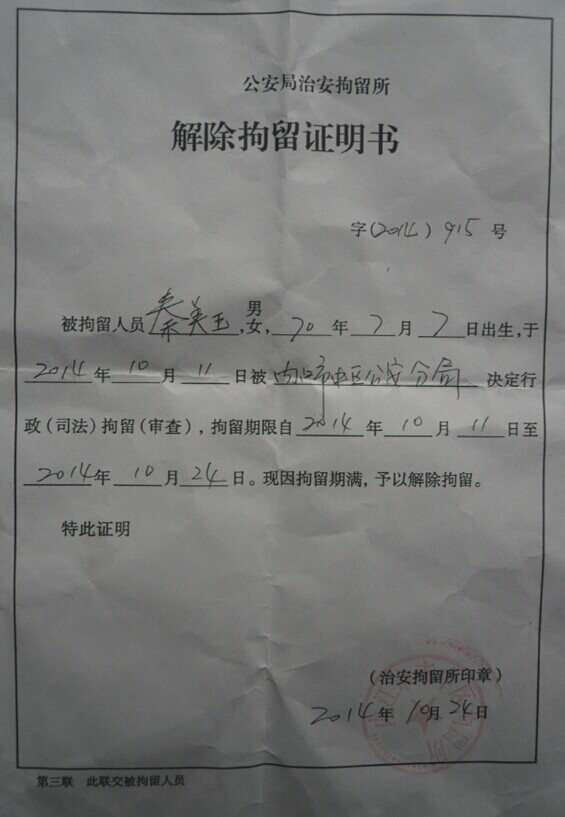 公安局治安拘留所
解除拘留证明书
字(2014)915号
被拘留人员秦美玉,男
女,70年7月7日出生,于
2014年10月11日被 公安分局 决定行
政(司法)拘留(审查),拘留期限自2014年10月11日至
2014年10月24日。现因拘留期满,予以解除拘留。
特此证明
(治安拘留所印章)
2014年10月24日
第三联 此联交被拘留人员